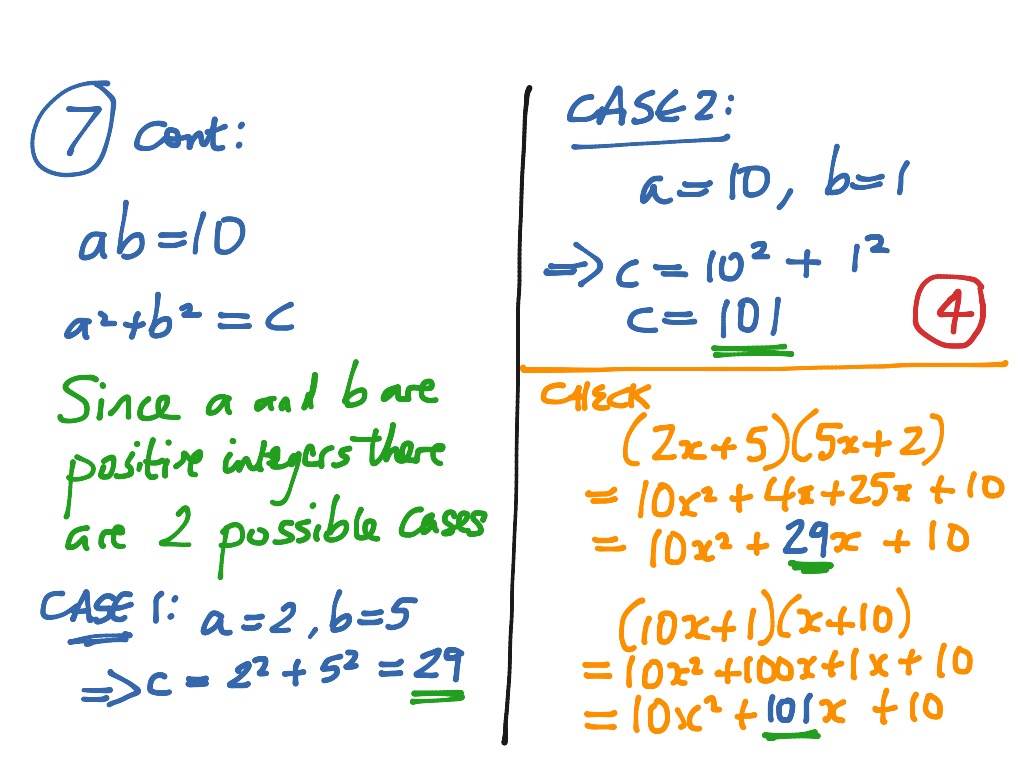 7 Cont:
ab=10
a²+b² = c
Since a and b are
positive integers there
are 2 possible cases
CASE 1: a=2, b=5
⇒ c = 2² + 5² = 29
CASE 2:
a=10, b=1
⇒ c = 10² + 1²
c = 101
4
CHECK
(2x+5)(5x+2)
= 10x² + 4x + 25x + 10
= 10x² + 29x + 10
(10x+1)(x+10)
= 10x² + 100x + 1x + 10
= 10x² + 101x + 10